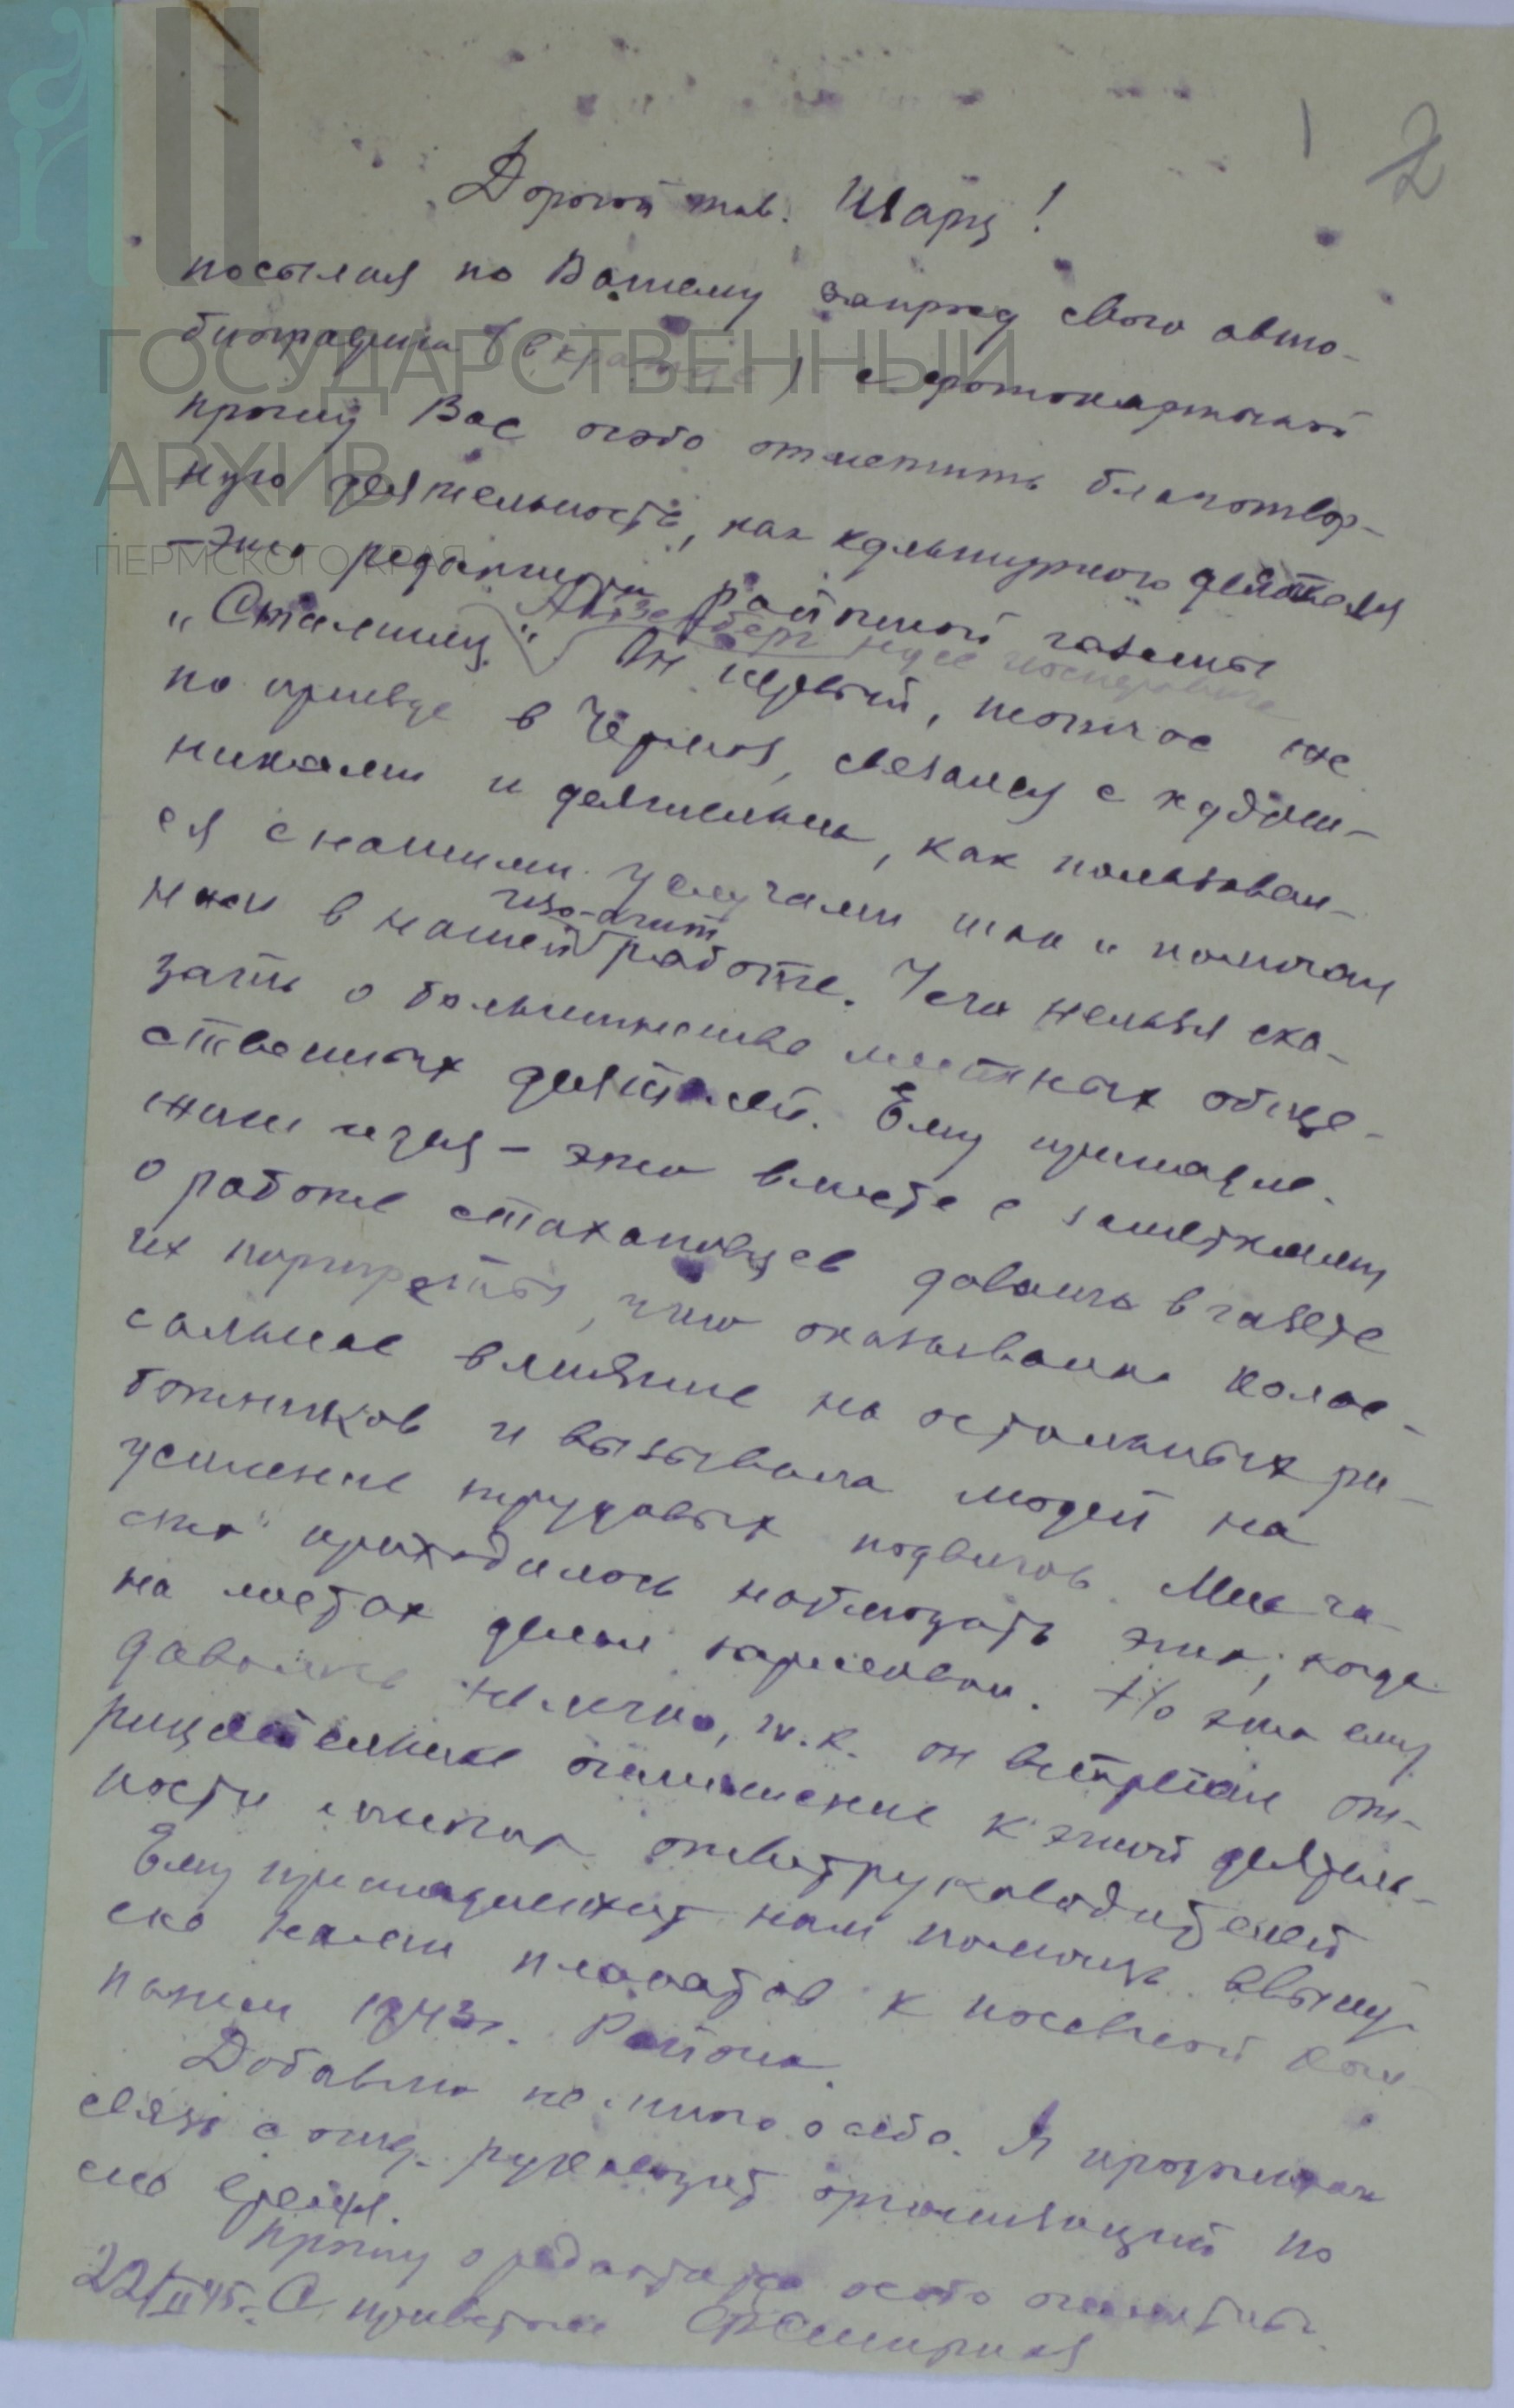 2
Дорогой тов. Шарц!
посылая по Вашему запросу свою авто-
биографию (вкратце) с фотокарточкой
прошу Вас особо отметить благотвор-
ную деятельность, как культурного деятеля
– это редактора районной газеты
"Сталинец" Айзенберг
Он первый, тотчас же
по приезде в Чермоз, связался с худож-
никами и деятельно, как пользовал-
ся с нашими услугами так и помогал
нам в нашей изо-агит работе. Чего нельзя ска-
зать о большинстве местных обще-
ственных деятелей. Ему принадле-
жит идея – это вместе с заметками
о работе стахановцев давать в газете
их портреты, что оказывало колос-
сальное влияние на остальных ра-
ботников и вызывало людей на
усиление трудовых подвигов. Мне ча-
сто приходилось наблюдать это, когда
на местах делал зарисовки. Но это ему
давалось не легко, т.к. он встречал от-
рицательное отношение к этой деятель-
ности многих ответруководителей
Ему принадлежит нам помощь в выпу-
ске нами плакатов к посевной кам-
пании 1943г. Района.
Добавлю не много о себе. Я продолжаю
связь с руководит организаций по
сие время.
Прошу о редакторе особо отметить.
22/II 45г. С приветом
ГОСУДАРСТВЕННЫЙ
АРХИВ
ПЕРМСКОГО КРАЯ